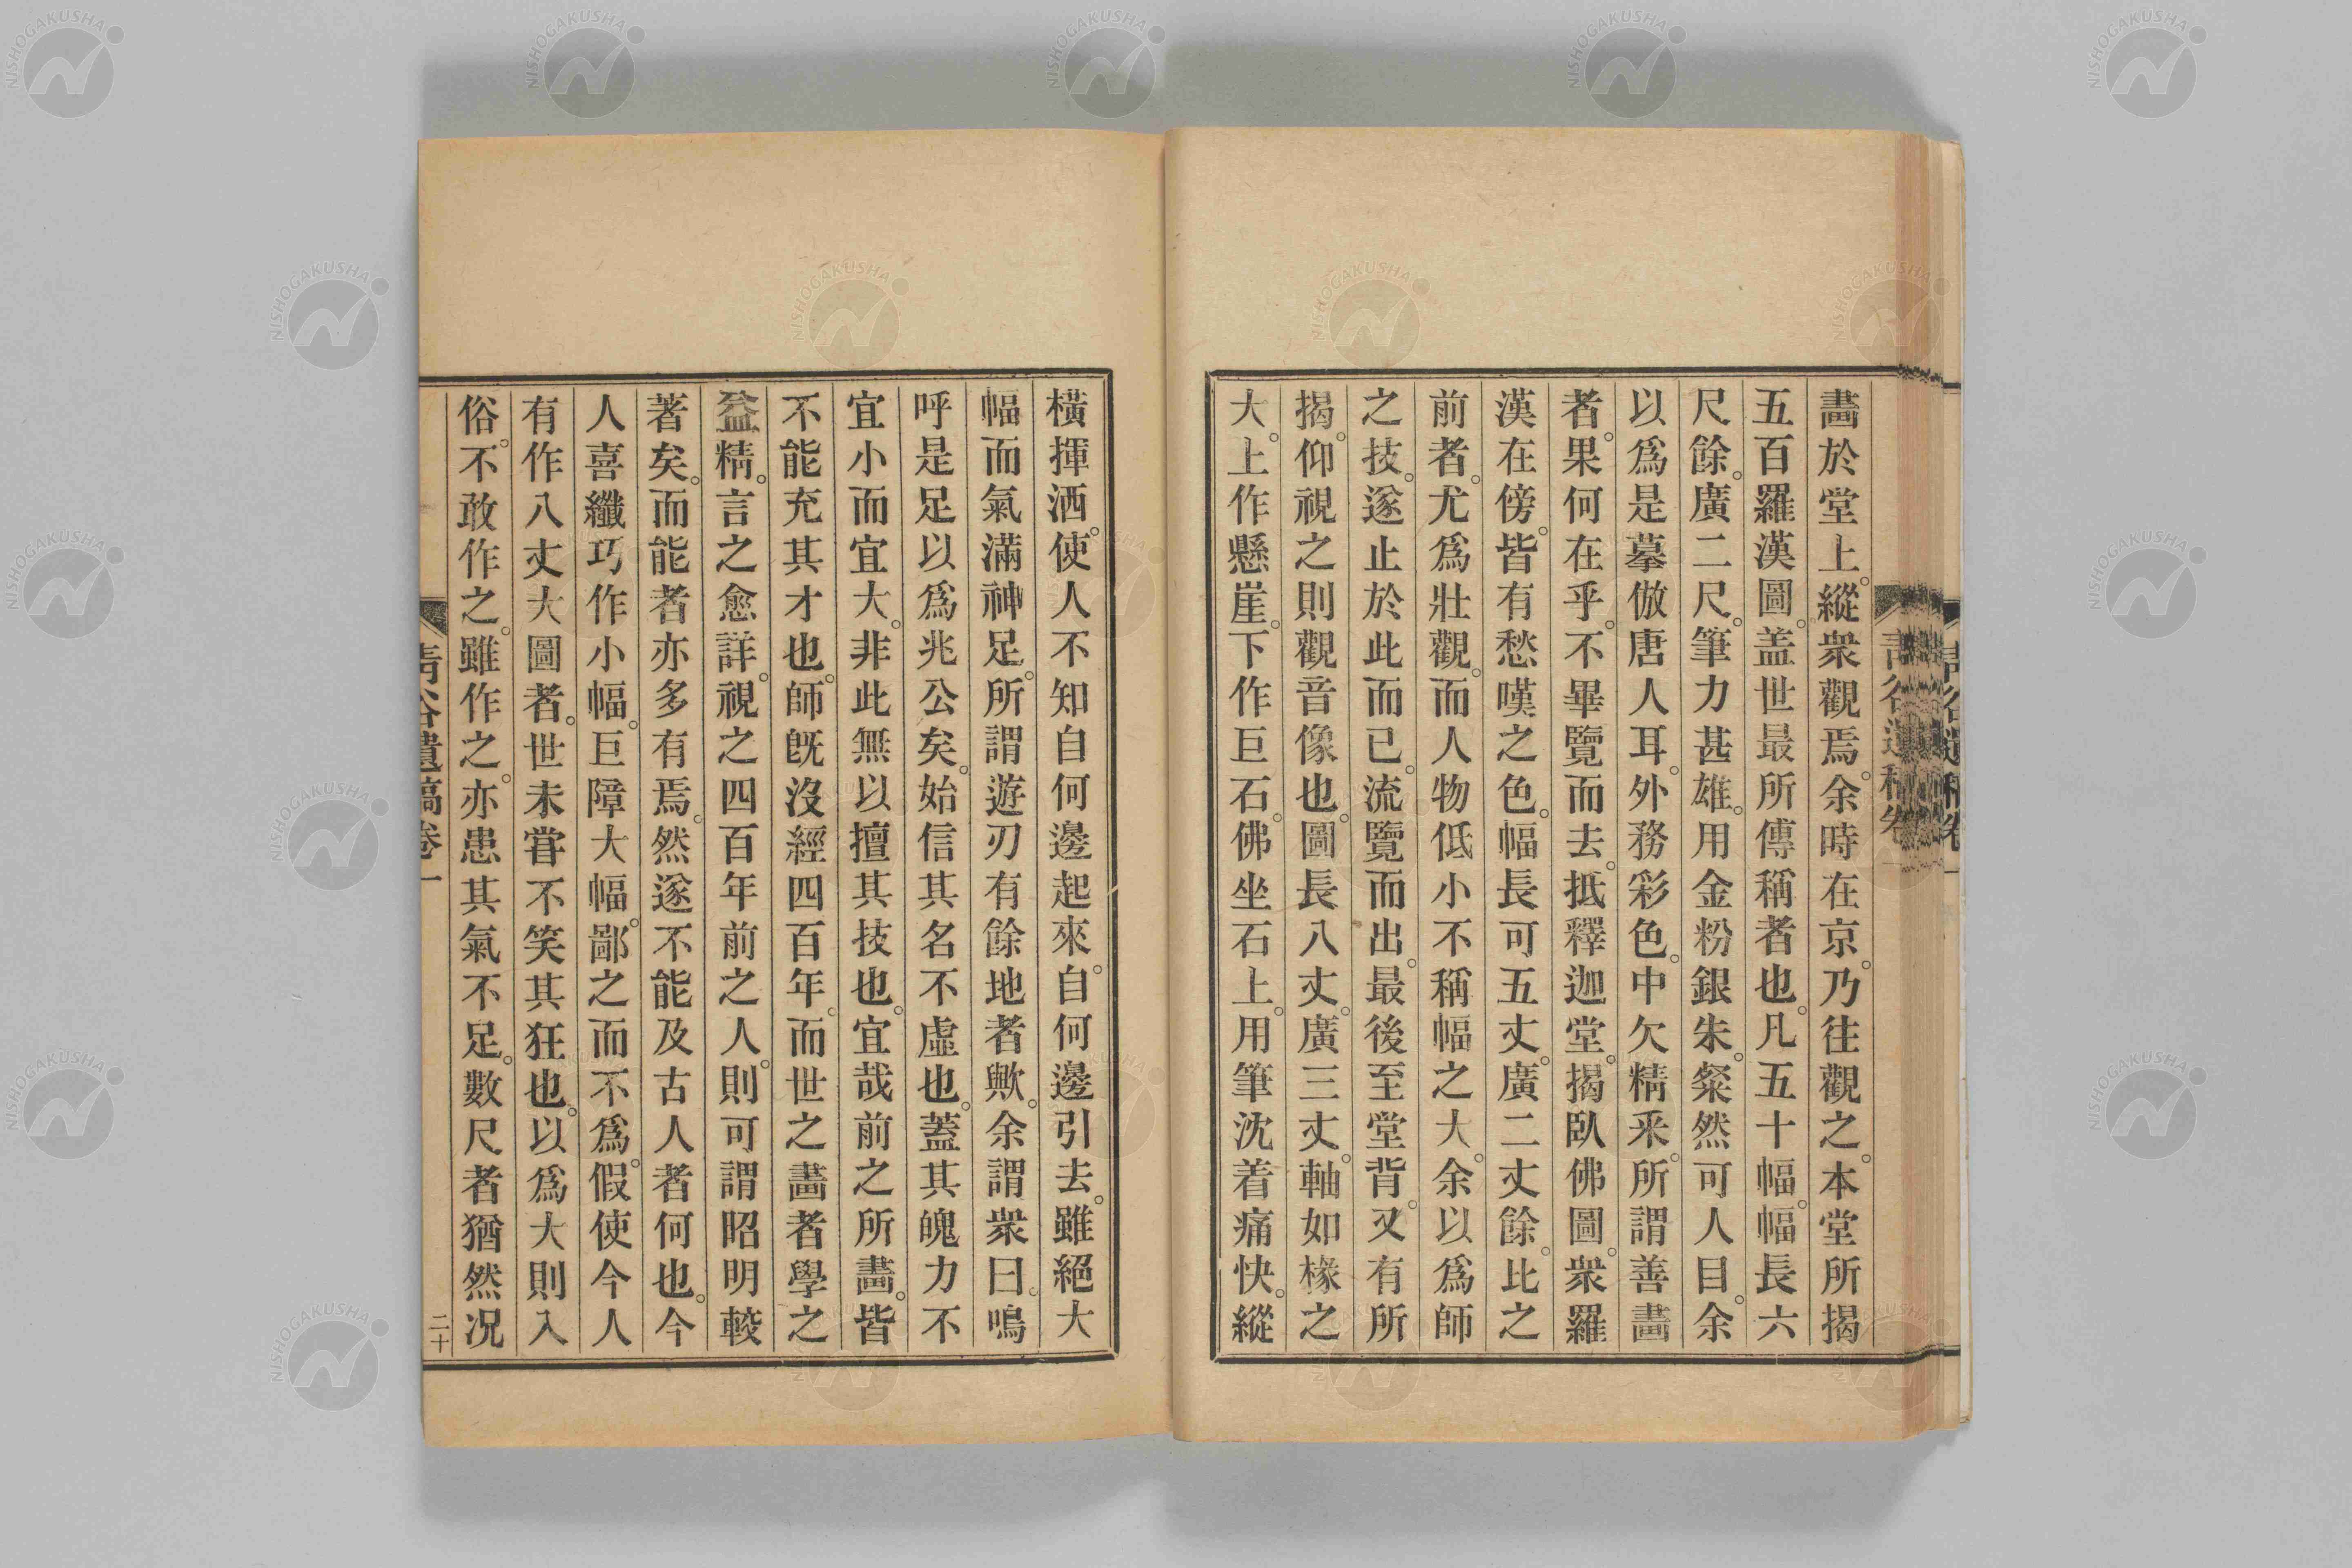 畫於堂上。縱衆觀焉。余時在京。乃往觀之。本堂所揭
五百羅漢圖。盖世最所傳稱者也。凡五十幅。幅長六
尺餘。廣二尺。筆力甚雄。用金粉銀朱。粲然可人目。余
以爲是摹倣唐人耳。外務彩色。中欠精釆。所謂善畫
者。果何在乎。不畢覽而去。抵釋迦堂。揭臥佛圖。衆羅
漢在傍。皆有愁嘆之色。幅長可五丈。廣二丈餘。比之
前者。尤爲壯觀。而人物低小不稱幅之大。余以爲師
之技。遂止於此而已。流覽而出。最後至堂背。又有所
揭。仰視之則觀音像也。圖長八丈。廣三丈。軸如椽之
大。上作懸崖。下作巨石。佛坐石上。用筆沈着痛快。縱
橫揮洒。使人不知自何邊起來。自何邊引去。雖絕大
幅而氣滿神足。所謂遊刃有餘地者歟。余謂衆曰。嗚
呼是足以爲兆公矣。始信其名不虛也。蓋其魄力不
宜小而宜大。非此無以擅其技也。宜哉前之所畫。皆
不能充其才也。師旣沒經四百年。而世之畫者學之
益精。言之愈詳。視之四百年前之人。則可謂昭明較
著矣。而能者亦多有焉。然遂不能及古人者何也。今
人喜纖巧作小幅。巨障大幅。鄙之而不爲。假使今人
有作八丈大圖者。世未甞不笑其狂也。以爲大則入
俗。不敢作之。雖作之。亦患其氣不足。數尺者猶然况
靑谷遺稿卷一
二十